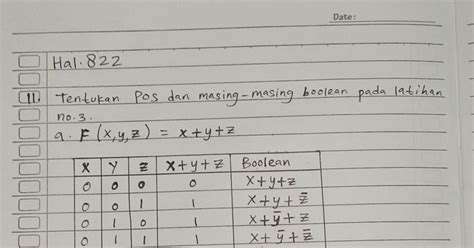 Date:
Hal. 822
11. Tentukan Pos dan masing-masing boolean pada latihan
no. 3.
a. F(x,y,z) = x+y+z
X Y Z X+y+z Boolean
0 0 0 0 X+y+z
0 0 1 1 X+y+z̄
0 1 0 1 X+ȳ+z
0 1 1 1 X+ȳ+z̄